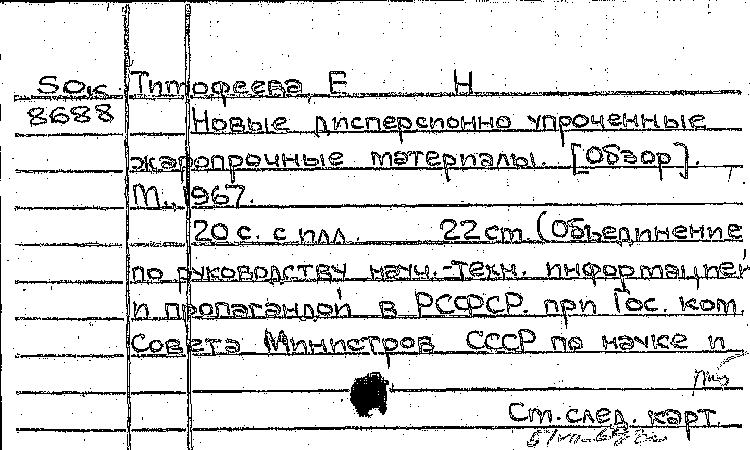 SOк Тимофеева Е Н
8688 Новые дисперсионно упроченные
жаропрочные материалы. [Обзор].
М., 1967.
20 с. с илл. 22 см. (Объединение
по руководству науч.-техн. информацией
и пропагандой в РСФСР. при Гос. ком.
Совета Министров СССР по науке и
См. след. карт.